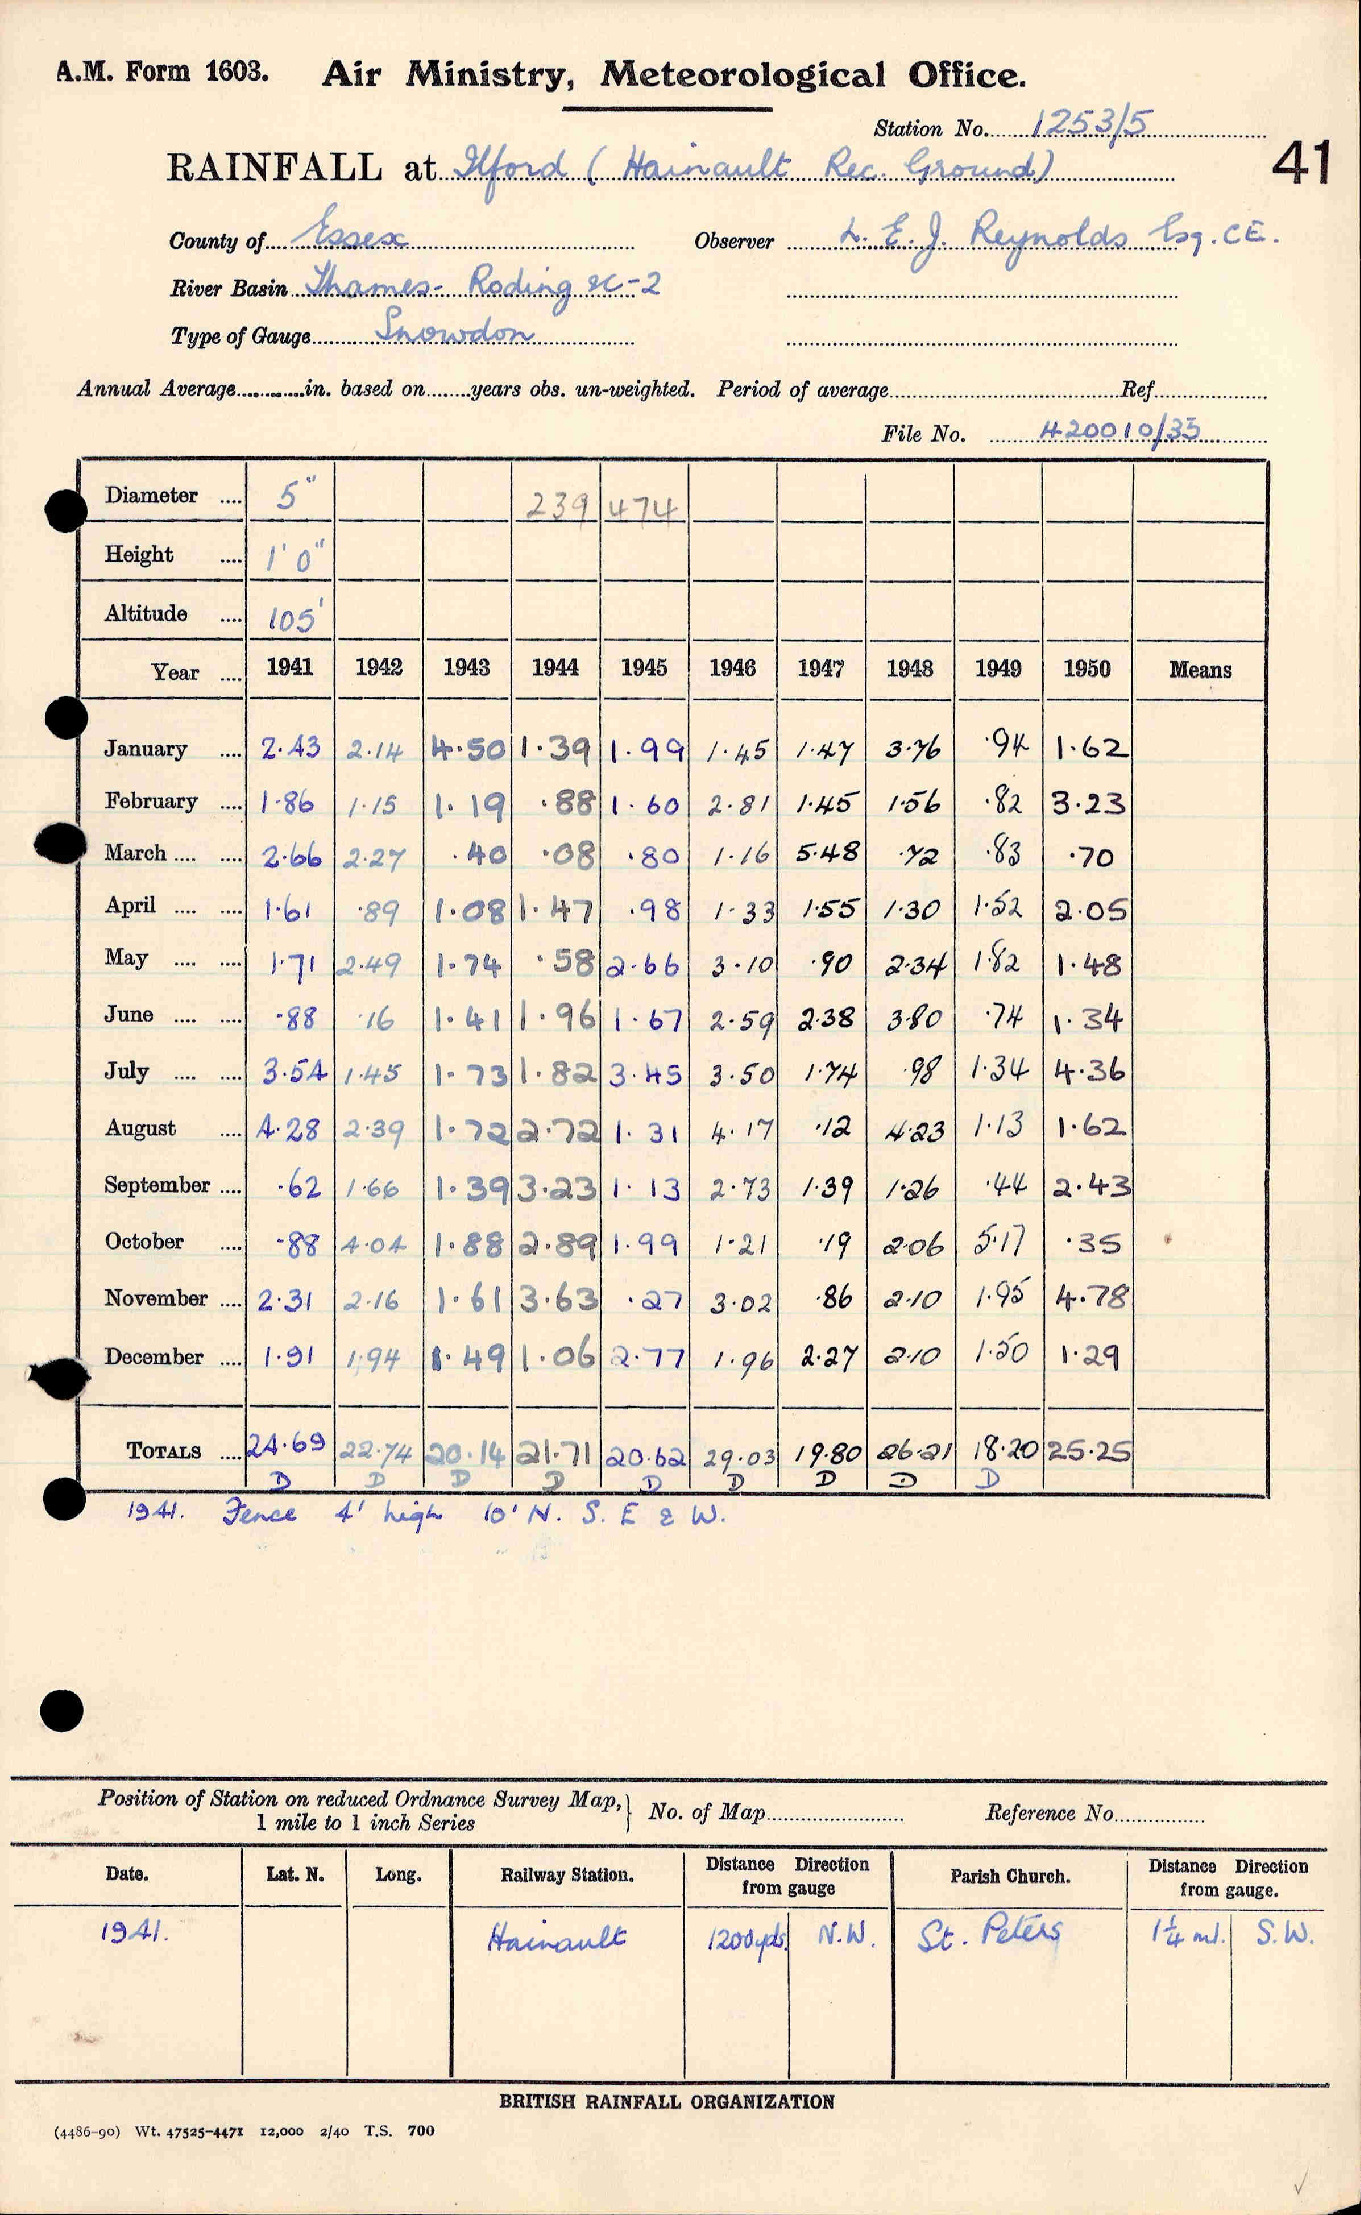 A.M. Form 1603. Air Ministry, Meteorological Office.
Station No. 1253/5
41
RAINFALL at Ilford (Hainault Rec. Ground)
County of Essex Observer L. E. J. Reynolds Esq. CE.
River Basin Thames- Roding sc-2
Type of Gauge Snowdon
Annual Average............in. based on........years obs. un-weighted. Period of average............ Ref............
File No. 420010/35
Diameter .... 5" 239 474
Height .... 1' 0"
Altitude .... 105'
Year .... 1941 1942 1943 1944 1945 1946 1947 1948 1949 1950 Means
January .... 2.43 2.14 4.50 1.39 1.99 1.45 1.47 3.76 .94 1.62
February .... 1.86 1.15 1.19 .88 1.60 2.81 1.45 1.56 .82 3.23
March .... .... 2.66 2.27 .40 .08 .80 1.16 5.48 .72 .83 .70
April .... .... 1.61 .89 1.08 1.47 .98 1.33 1.55 1.30 1.52 2.05
May .... .... 1.71 2.49 1.74 .58 2.66 3.10 .90 2.34 1.82 1.48
June .... .... .88 .16 1.41 1.96 1.67 2.59 2.38 3.80 .74 1.34
July .... .... 3.54 1.45 1.73 1.82 3.45 3.50 1.74 .98 1.34 4.36
August .... 4.28 2.39 1.72 2.72 1.31 4.17 .12 4.23 1.13 1.62
September .... .62 1.66 1.39 3.23 1.13 2.73 1.39 1.26 .44 2.43
October .... .88 4.04 1.88 2.89 1.99 1.21 .19 2.06 5.17 .35
November .... 2.31 2.16 1.61 3.63 .27 3.02 .86 2.10 1.95 4.78
December .... 1.91 1.94 1.49 1.06 2.77 1.96 2.27 2.10 1.50 1.29
TOTALS .... 24.69 22.74 20.14 21.71 20.62 29.03 19.80 26.21 18.20 25.25
D D D D D D D D D
1941. Fence 4' high 10' N. S. E & W.
Position of Station on reduced Ordnance Survey Map, 1 mile to 1 inch Series } No. of Map............ Reference No............
Date. Lat. N. Long. Railway Station. Distance Direction from gauge Parish Church. Distance Direction from gauge.
1941. Hainault 1200yds. N.W. St. Peters 1¼ ml. S.W.
BRITISH RAINFALL ORGANIZATION
(4486-90) Wt. 47525-4471 12,000 2/40 T.S. 700